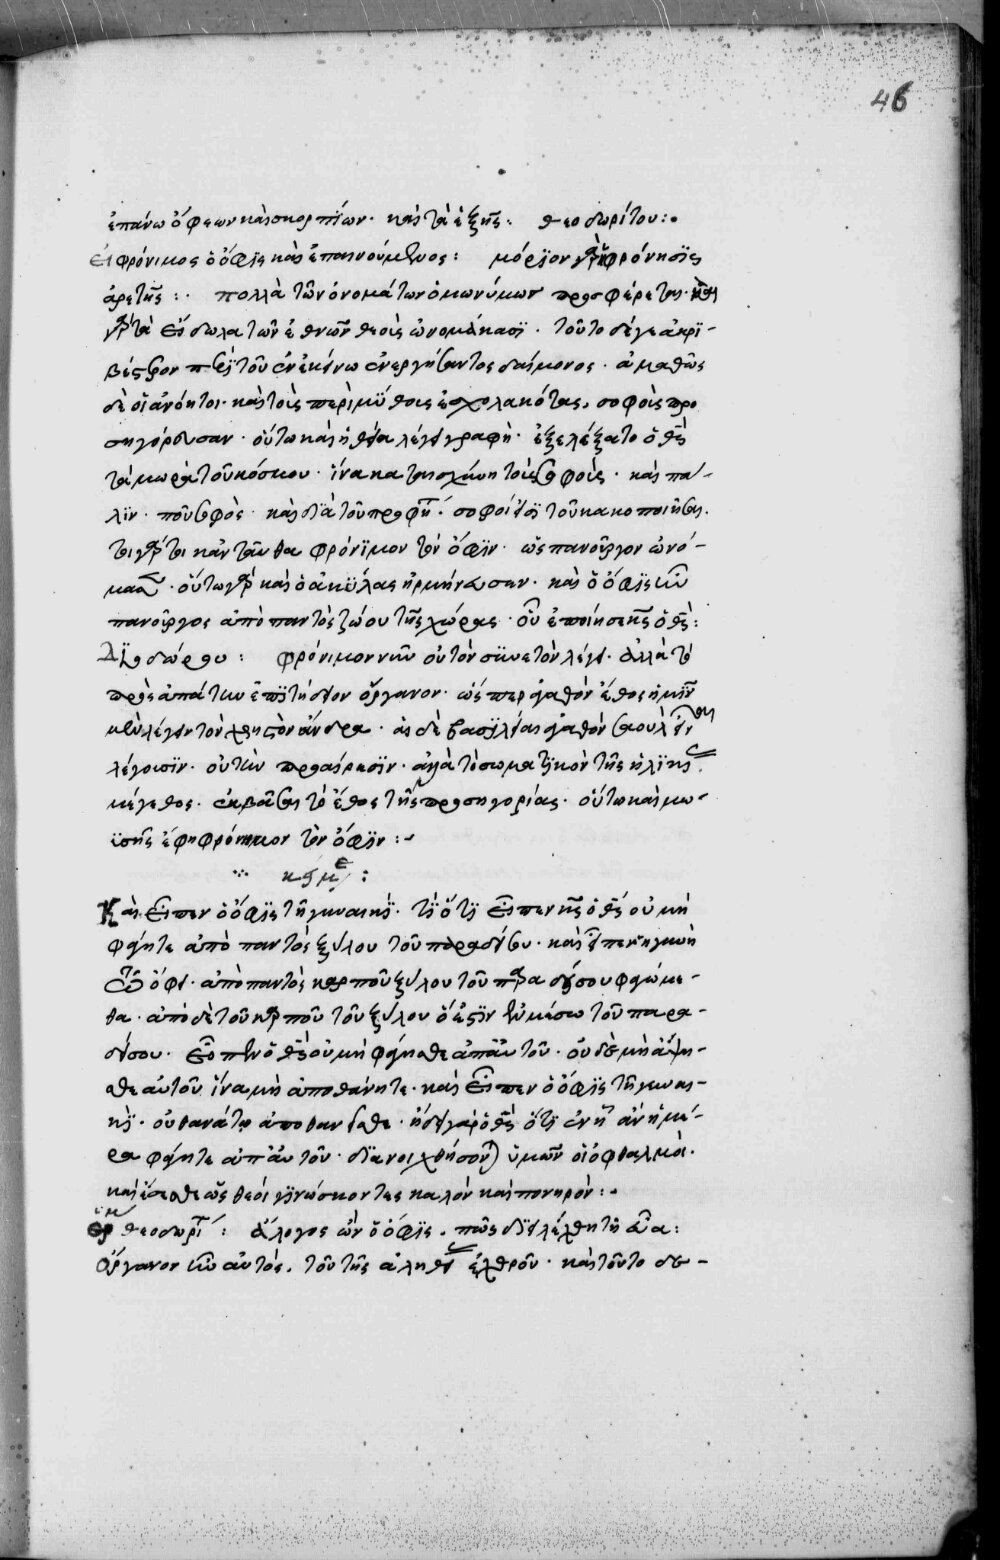 46
ἐπάνω ὄφεων καὶ σκορπίων· καὶ τὰ ἑξῆς: θεοδωρίτου:
Εἰ φρόνιμος ὁ ὄφϊς καὶ ἐπαινούμενος: μόρϊον γὰρ ἡ φρόνησϊς
ἀρετῆς: πολλὰ τῶν ὀνομάτων ὁμωνύμως προσφέρεται· καὶ
γὰρ τὰ εἴδωλα τῶν ἐθνῶν θεοὺς ὠνομάκασϊ· τοῦτο δέ γε ἀκρϊ-
βέστερον περὶ τοῦ ἐν ἐκείνω ἐνεργήσαντος δαίμονος· ἀμαθῶς
δὲ οἱ ἀνόητοι· καὶ τοὺς περὶ μύθοις ἐσχολακότας, σοφοὺς προ
σηγόρευσαν· οὕτω καὶ ἡ θεία λέγει γραφὴ· ἐξελέξατο ὁ θς
τὰ μωρὰ τοῦ κόσμου· ἵνα καταισχύνη τοὺς σοφοὺς· καὶ πά-
λϊν· ποῦ σοφὸς· καὶ διὰ τοῦ προφή· σοφοί εἰσϊ τοῦ κακοποιῆσαι·
τοιγάρτοι κἀνταῦθα φρόνϊμον τὸν ὄφϊν· ὡς πανοῦργον ὠνό-
μασε· οὕτω γὰρ καὶ ὁ ἀκύλας ἡρμήνευσεν· καὶ ὁ ὄφϊς ἦν
πανοῦργος ἀπὸ παντὸς ζώου τῆς χώρας· οὗ ἐποίησεν κς ὁ θς:
Διοδώρου: φρόνιμον νῦν οὐ τὸν συνετὸν λέγει· ἀλλὰ τὸ
πρὸς ἀπάτην ἐπιτήδειον ὄργανον· ὥσπερ ἀγαθὸν ἔθος ἡμῖν
μὲν λέγειν τὸν χρηστὸν ἄνδρα· αἱ δὲ βασιλεῖαι ἀγαθὸν σαοὺλ
λέγουσϊν· οὐ τὴν προαίρεσϊν· ἀλλὰ τὸ σωματϊκὸν τῆς ἡλϊκίας
μέγεθος· ἐκβᾶσαι τὸ ἔθος τῆς προσηγορίας· οὕτω καὶ μω-
ϋσῆς ἔφη φρόνιμον τὸν ὄφϊν:
κείμε:
Καὶ εἶπεν ὁ ὄφϊς τῆ γυναικὶ· τί ὅτϊ εἶπεν κς ὁ θς οὐ μὴ
φάγητε ἀπὸ παντὸς ξύλου τοῦ παραδείσου· καὶ εἶπεν ἡ γυνὴ
τῶ ὄφει· ἀπὸ παντὸς καρποῦ ξύλου τοῦ παραδείσου φαγώμε-
θα· ἀπὸ δὲ τοῦ καρποῦ τοῦ ξύλου ὅ ἐστϊν ἐν μέσω τοῦ παρα-
δείσου· εἶπεν ὁ θς οὐ μὴ φάγησθε ἀπ' αὐτοῦ· οὐδὲ μὴ ἅψη-
σθε αὐτοῦ ἵνα μὴ ἀποθάνητε· καὶ εἶπεν ὁ ὄφϊς τῆ γυναι-
κὶ· οὐ θανάτω ἀποθανεῖσθε· ἤδει γὰρ ὁ θς ὅτϊ ἐν ἧ ἂν ἡμέ-
ρα φάγητε ἀπ' αὐτοῦ· διανοιχθήσονται ὑμῶν οἱ ὀφθαλμοὶ·
καὶ ἔσεσθε ὡς θεοὶ γϊνώσκοντες καλὸν καὶ πονηρὸν:
θεοδωρί: ἄλογος ὢν ὁ ὄφϊς· πῶς διελέχθη τῆ εὔα:
Ὄργανον ἦν αὐτὸς, τοῦ τῆς ἀληθείας ἐχθροῦ· καὶ τοῦτο δε-